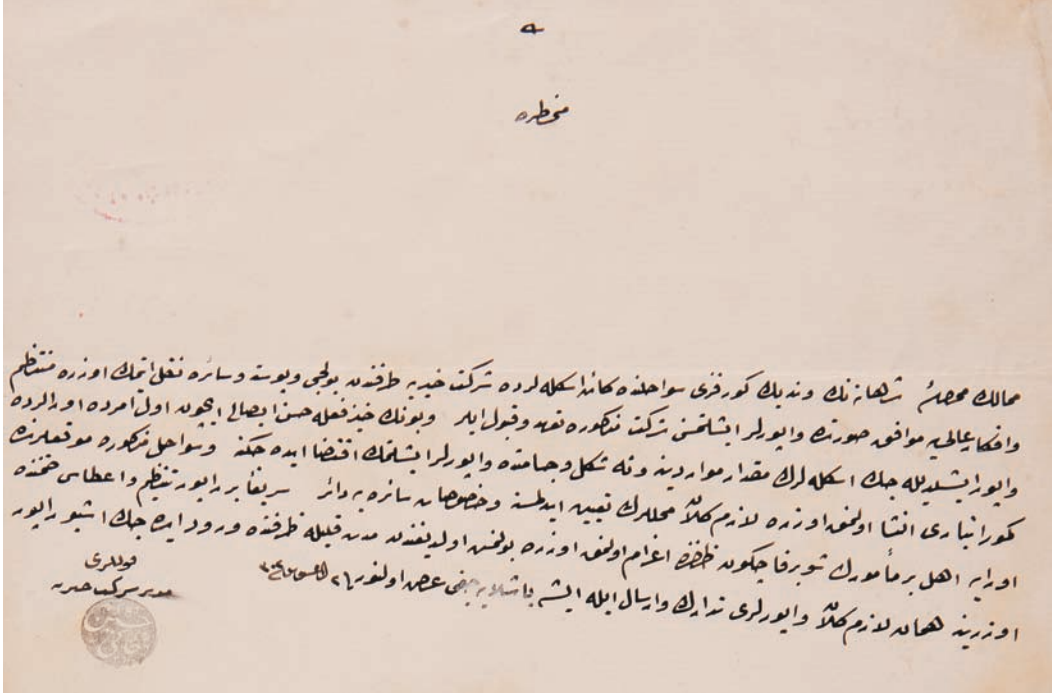 مخطره
ممالك محروسهٔ شاهانه‌نك و نديك كورفزی سواحلنده كائن اسكله‌لرده شركت خيريه طرفندن يولجی و پوسته و سائره نقل ايتمك اوزره منتظم
و افكار عاليه موافق صورتده واپورلر ايشلتمسنی شركت مذكوره تعهد و قبول ايدر و بونك حيز فعله حسن ايصالی ايچون اول امرده اورالرده
واپور ايشلديله‌جك اسكله‌لرك مقدار مواردينی و نه شكل و جسامتده واپورلر ايشلتمك اقتضا ايده‌جكنی و سواحل مذكوره موقعلرنده
كمور انباری انشا اولنمق اوزره لازم كلان محللرك تعيين ايدلمسی و خصوصات سائره‌يه دائر سريعاً بر راپور تنظيم و اعطاسی ضمننده
اورايه اهل بر مأمورك شو بر قاچ كون ظرفنده اعزام اولنمق اوزره بولنمش اولديغندن مدت قليله ظرفنده ورود ايده‌جك اشبو راپور
اوزرينه همان لازم كلان واپورلری تدارك و ارسال ايله ايشه باشلايه‌جغی عرض اولنور ٢٦ اغستوس
قوللری
مدير شركت خيريه